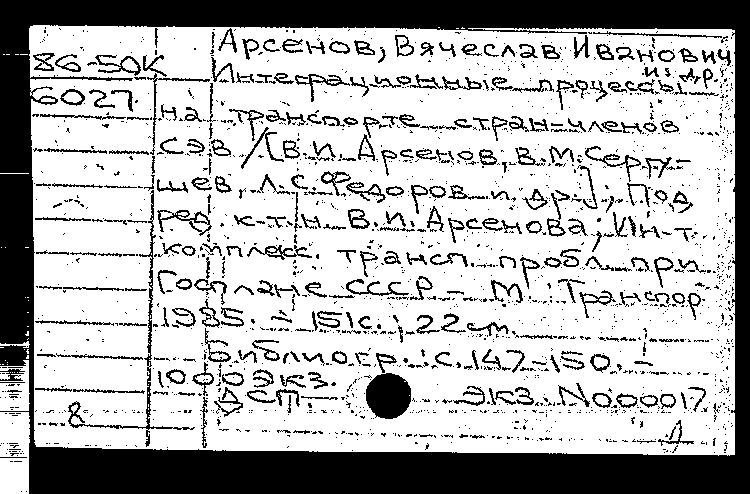 Арсенов, Вячеслав Иванович
86-50К
и др.
Интеграционные процессы
6027
на транспорте стран-членов
СЭВ / [В.И. Арсенов, В.М. Сергу-
шев, Л.С. Федоров и др.]; Под
ред. к.т.н. В.И. Арсенова; Ин-т
комплекс. трансп. пробл. при
Госплане СССР - М : Транспор
1985. - 151с.; 22см.
Библиогр.: с.147-150. -
1000экз.
ДСП. экз. No00017
8